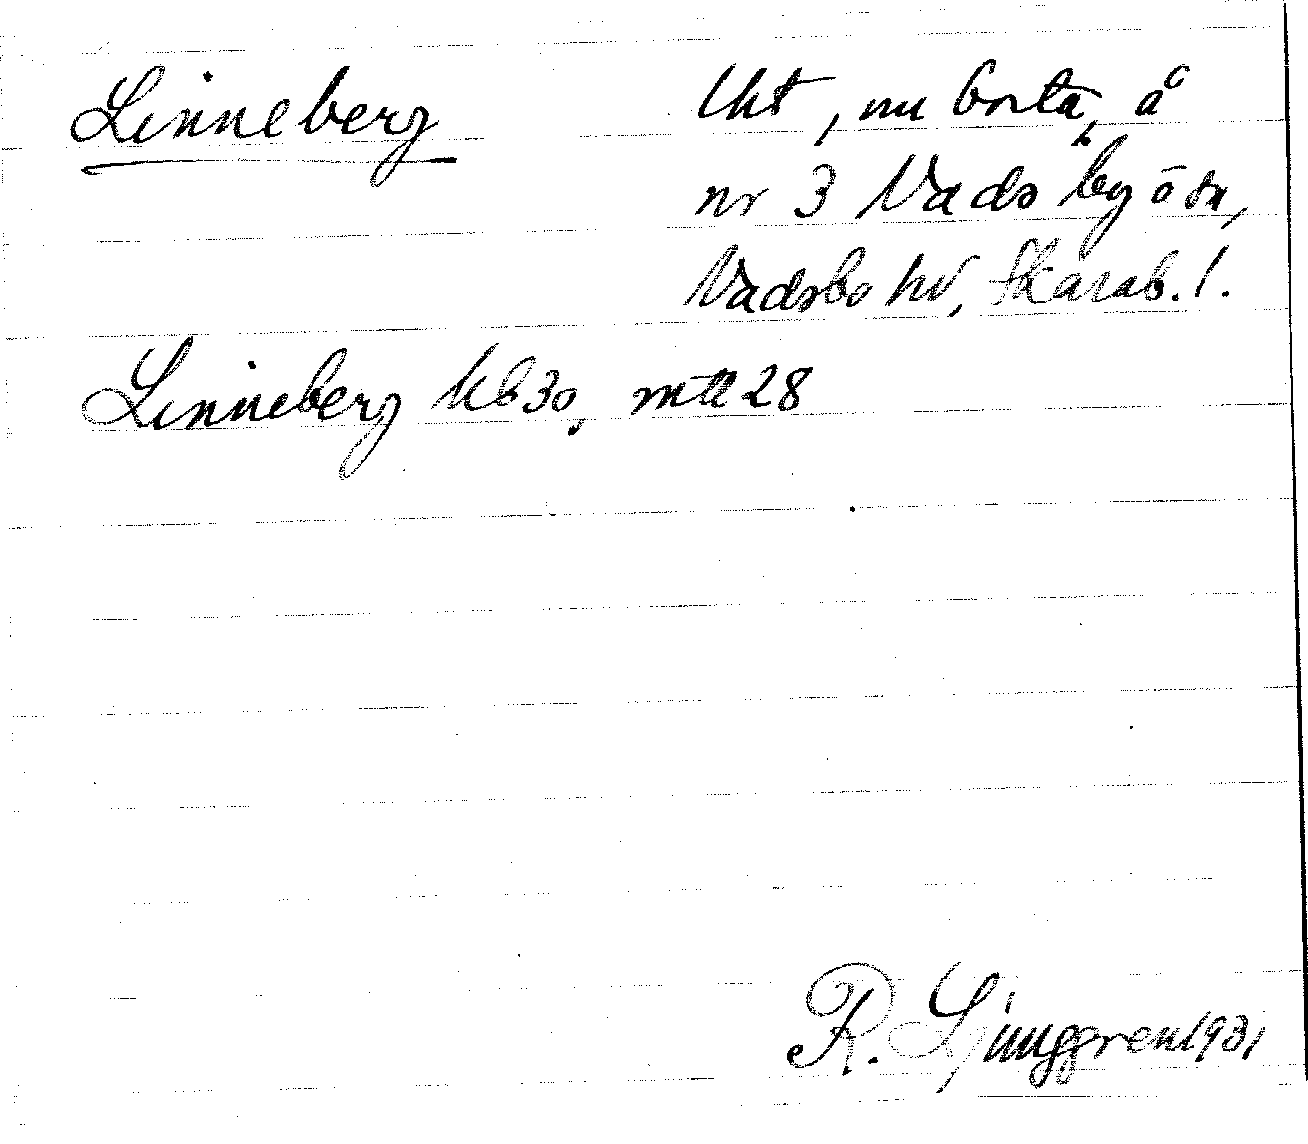 Linneberg
Lht, nu borta, å
nr 3 Vads by ö sn,
Vadsbo hd, Skarab. l.
Linneberg kb 30, mtl 28
R. Ljunggren 1931